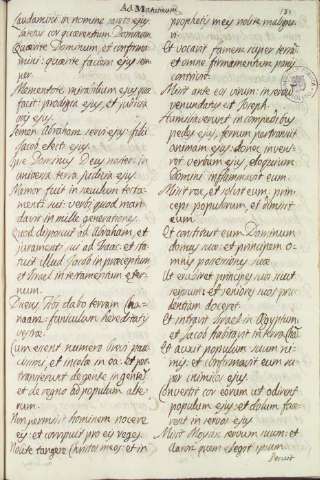 Ad Matutinum.
131
Laudamini in nomine sancto ejus
lætetur cor quærentium Dominum
Quærite Dominum, et confirma-
mini: quærite faciem ejus sem-
per.
Mementote mirabilium ejus quæ
fecit: prodigia ejus, et judicia
oris ejus.
Semen Abraham servi ejus: filii
Jacob electi ejus.
Ipse Dominus Deus noster: in
universa terra judicia ejus.
Memor fuit in sæculum testa-
menti sui: verbi quod mandavit
in mille generationes.
Quod disposuit ad Abraham, et
juramenti sui ad Isaac: et sta-
tuit illud Jacob in præceptum
et Israel in testamentum æter-
num.
Dicens: Tibi dabo terram Cha-
naam: funiculum hereditatis
vestræ.
Cum essent numero brevi pau-
cissimi, et incolæ in ea: Et per-
transierunt de gente in gentem
et de regno ad populum alte-
rum.
Non permisit hominem nocere
eis: et corripuit pro eis reges.
Nolite tangere Christos meos: et in
prophetis meis nolite maligna-
ri.
Et vocavit famem super terram
et omne firmamentum panis
contrivit.
Misit ante eos virum: in servum
venundatus est Joseph.
Humiliaverunt in compedibus
pedes ejus, ferrum pertransivit
animam ejus: donec inveni-
ret verbum ejus, eloquium
Domini inflammavit eum.
Misit rex, et solvit eum, prin-
ceps populorum, et dimisit
eum.
Et constituit eum Dominum
domus suæ: et principem o-
mnis possessionis suæ.
Ut erudiret principes suos, sicut
seipsum: et seniores suos pru-
dentiam doceret.
Et intravit Israel in Ægyptum:
et Jacob habitavit in terra Cham
Et auxit populum suum ni-
mis: et confirmavit eum su-
per inimicos ejus.
Convertit cor eorum ut odirent
populum ejus: et dolum face-
rent in servos ejus
Misit Moysen servum suum: et
Aaron quem elegit ipsum.